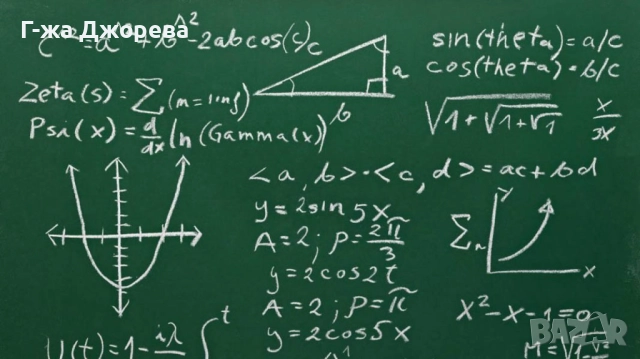 Г-жа Джорева
c²=a²+b²-2abcos(c)
c
a
b
sin(theta)=a/c
cos(theta)=b/c
Zeta(s)=∑(m=1inf)
Psi(x)=d/dx ln(Gamma(x))
√1+√1+√1
x/3x
<a,b>·<c,d>=ac+bd
y=2sin5x
A=2;P=2π/3
y=2cos2t
A=2;P=π
y=2cos5x
∑n
y
x
x²-x-1=0
U(t)=1-iλ
∫t
BAZAR